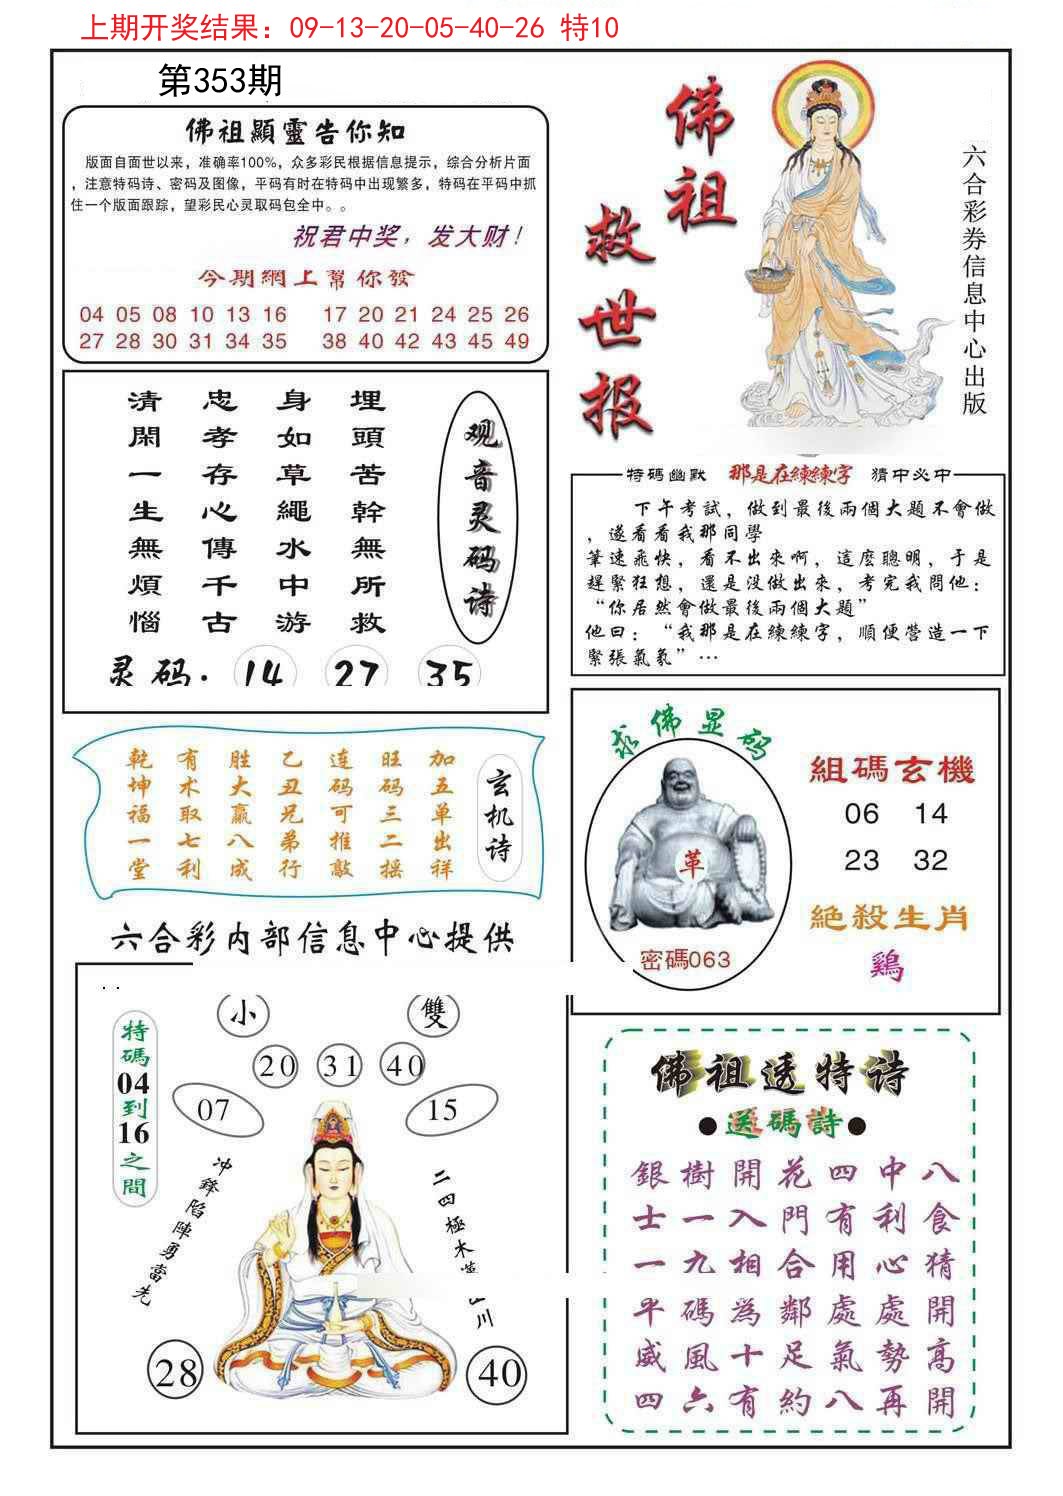 上期开奖结果：09-13-20-05-40-26 特10
第353期
佛祖顯靈告你知
版面自面世以来，准确率100%，众多彩民根据信息提示，综合分析片面
，注意特码诗、密码及图像，平码有时在特码中出现繁多，特码在平码中抓
住一个版面跟踪，望彩民心灵取码包全中。。
祝君中奖，发大财！
今期網上幫你發
04 05 08 10 13 16 17 20 21 24 25 26
27 28 30 31 34 35 38 40 42 43 45 49
佛祖
救世报
六合彩券信息中心出版
观音灵码诗
埋頭苦幹無所救
身如草繩水中游
忠孝存心傳千古
清閑一生無煩惱
灵码. 14 27 35
特碼幽默 那是在練練字 猜中必中
下午考試，做到最後兩個大題不會做
，遂看看我那同學
筆速飛快，看不出來啊，這麼聰明，于是
趕緊狂想，還是沒做出來，考完我問他：
“你居然會做最後兩個大題”
他曰：“我那是在練練字，順便營造一下
緊張氣氛”…
玄机诗
加五单出祥
旺码三二摇
连码可推敲
乙丑兄弟行
胜大赢八成
有术取七利
乾坤福一堂
求佛显码
革
密碼063
組碼玄機
06 14
23 32
絕殺生肖
鷄
六合彩内部信息中心提供
. .
小 雙
20 31 40
07 15
特碼04到16之間
冲鋒陷陣勇當先
二四極木
川
28 40
佛祖透特诗
●送碼詩●
銀樹開花四中八
士一入門有利食
一九相合用心猜
平碼為鄰處處開
威風十足氣勢高
四六有約八再開